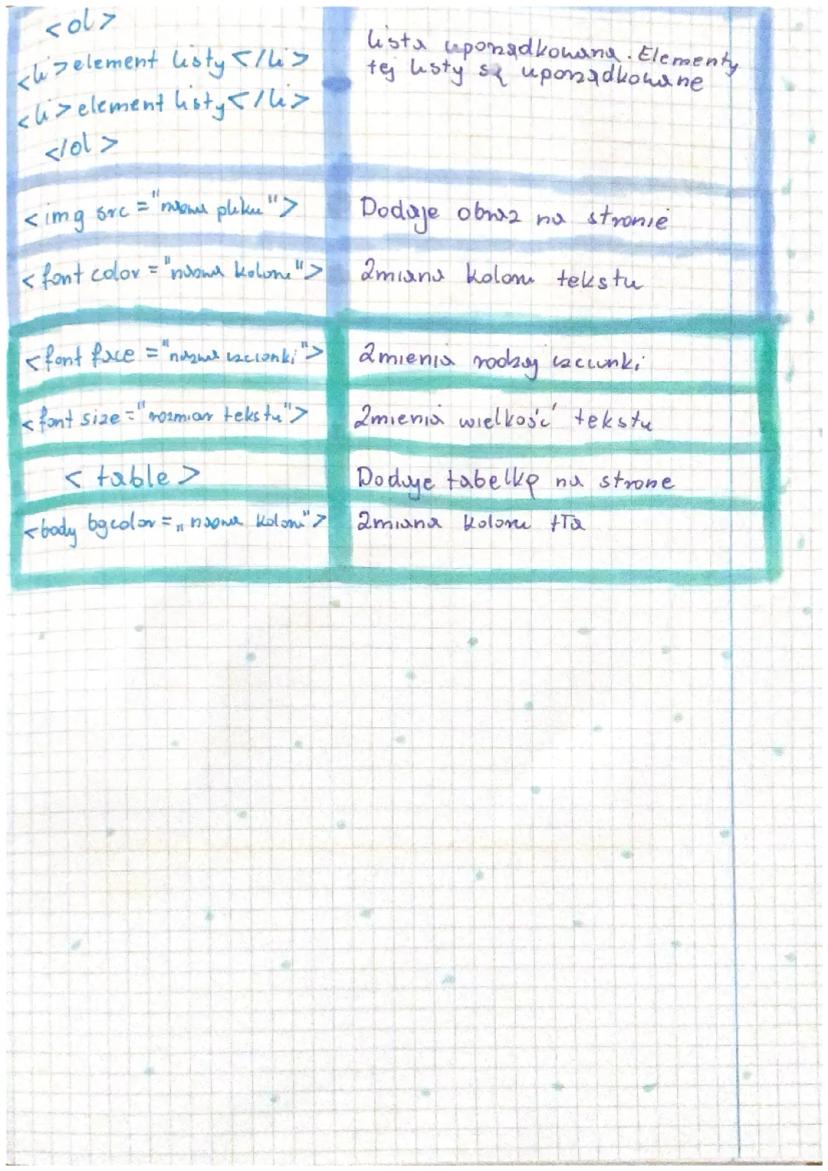 <ol>
<li>element listy</li>
<li>element listy</li>
</ol>
lista uporządkowana. Elementy
tej listy są uporządkowane
<img src="nazwa pliku">
Dodaje obraz na stronie
<font color="nazwa koloru">
Zmiana koloru tekstu
<font face="nazwa czcionki">
Zmienia rodzaj czcionki
<font size="rozmiar tekstu">
Zmienia wielkość tekstu
<table>
Dodaje tabelkę na strone
<body bgcolor=„nazwa koloru">
Zmiana koloru tła